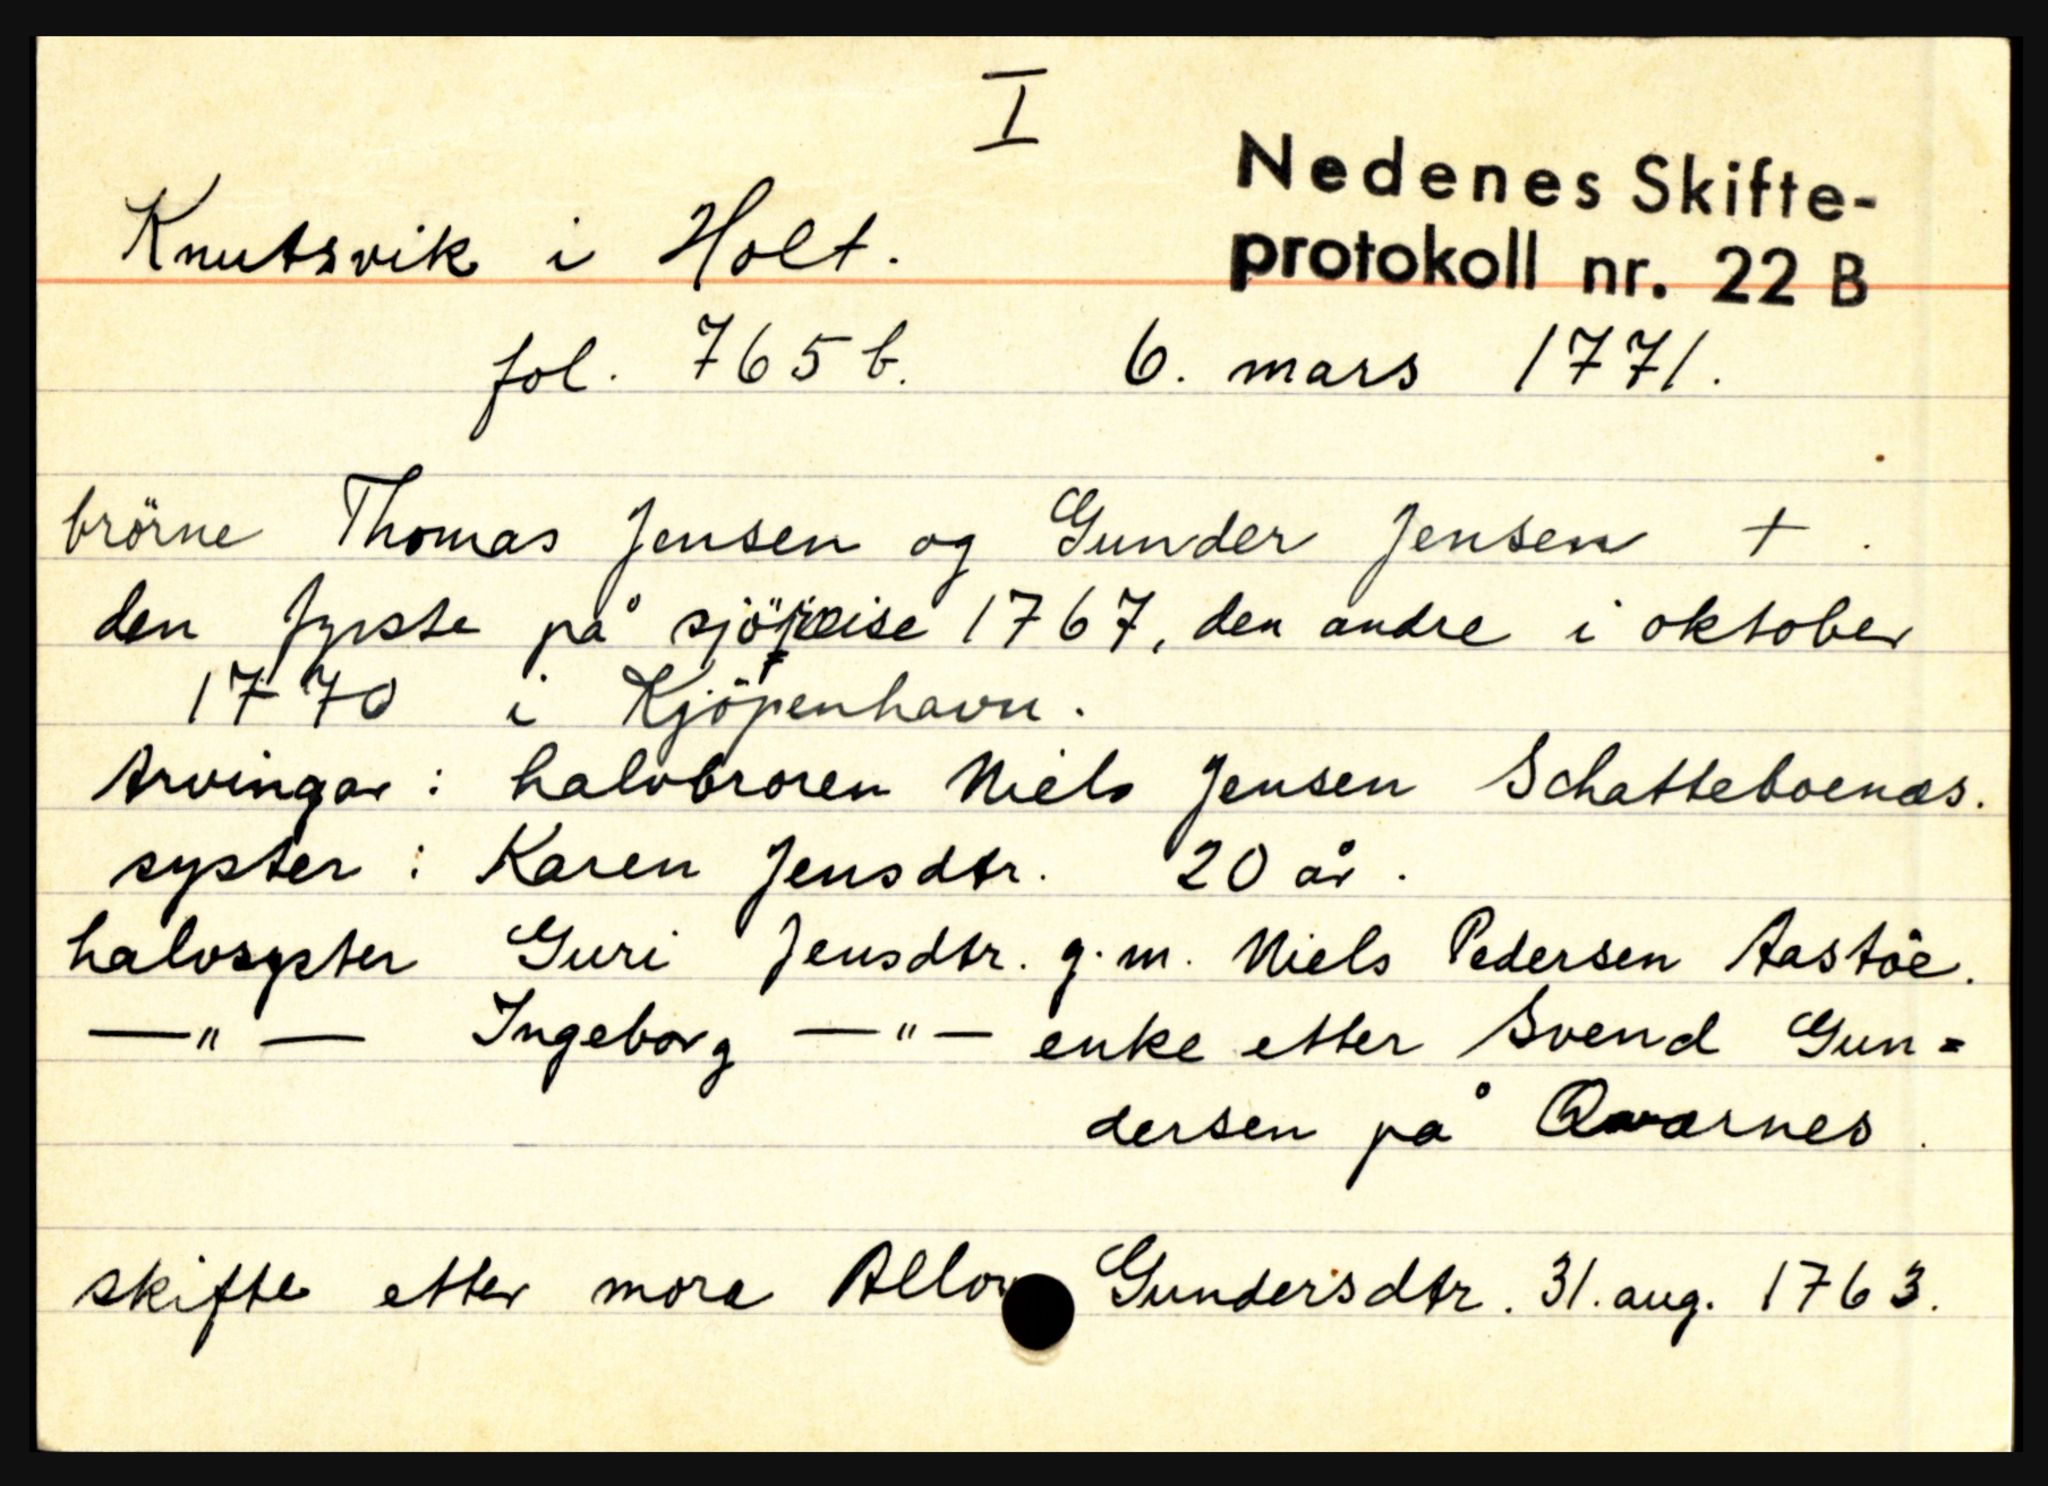 I
Nedenes Skifte-
protokoll nr. 22 B
Knutsvik i Holt.
fol. 765 b. 6. mars 1771.
brörne Thomas Jensen og Gunder Jensen +.
den fyrste på sjöreise 1767, den andre i oktober
1770 i Kjöpenhavn.
Arvingar: halvbroren Niels Jensen Schatteboenæs.
syster: Karen Jensdtr. 20 år.
halvsyster Guri Jensdtr. g.m. Niels Pedersen Aastöe.
—"— Ingeborg —"— enke etter Svend Gun=
dersen på Qvarnes.
skifte etter mora Gundersdtr. 31. aug. 1763.